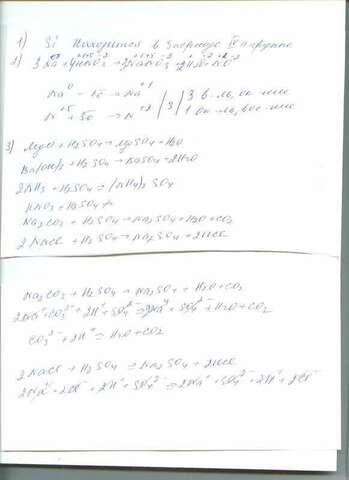 1) Si Находится в 3 периоде IV группе
2) 3Na + 4HNO3 → 3NaNO3 + 2H2O + NO
Na0 - 1e → Na+1 | 3 | 3 в-ль, ок-ние
N+5 + 3e → N+2 | 1 ок-ль, вос-ние
3) MgO + H2SO4 → MgSO4 + H2O
Ba(OH)2 + H2SO4 → BaSO4 + 2H2O
2NH3 + H2SO4 = (NH4)2SO4
HNO3 + H2SO4 ≠
Na2CO3 + H2SO4 → Na2SO4 + H2O + CO2
2NaCl + H2SO4 → Na2SO4 + 2HCl
Na2CO3 + H2SO4 → Na2SO4 + H2O + CO2
2Na+ + CO3 2- + 2H+ + SO4 2- = 2Na+ + SO4 2- + H2O + CO2
CO3 2- + 2H+ = H2O + CO2
2NaCl + H2SO4 = Na2SO4 + 2HCl
2Na+ + 2Cl- + 2H+ + SO4 2- = 2Na+ + SO4 2- + 2H+ + 2Cl-